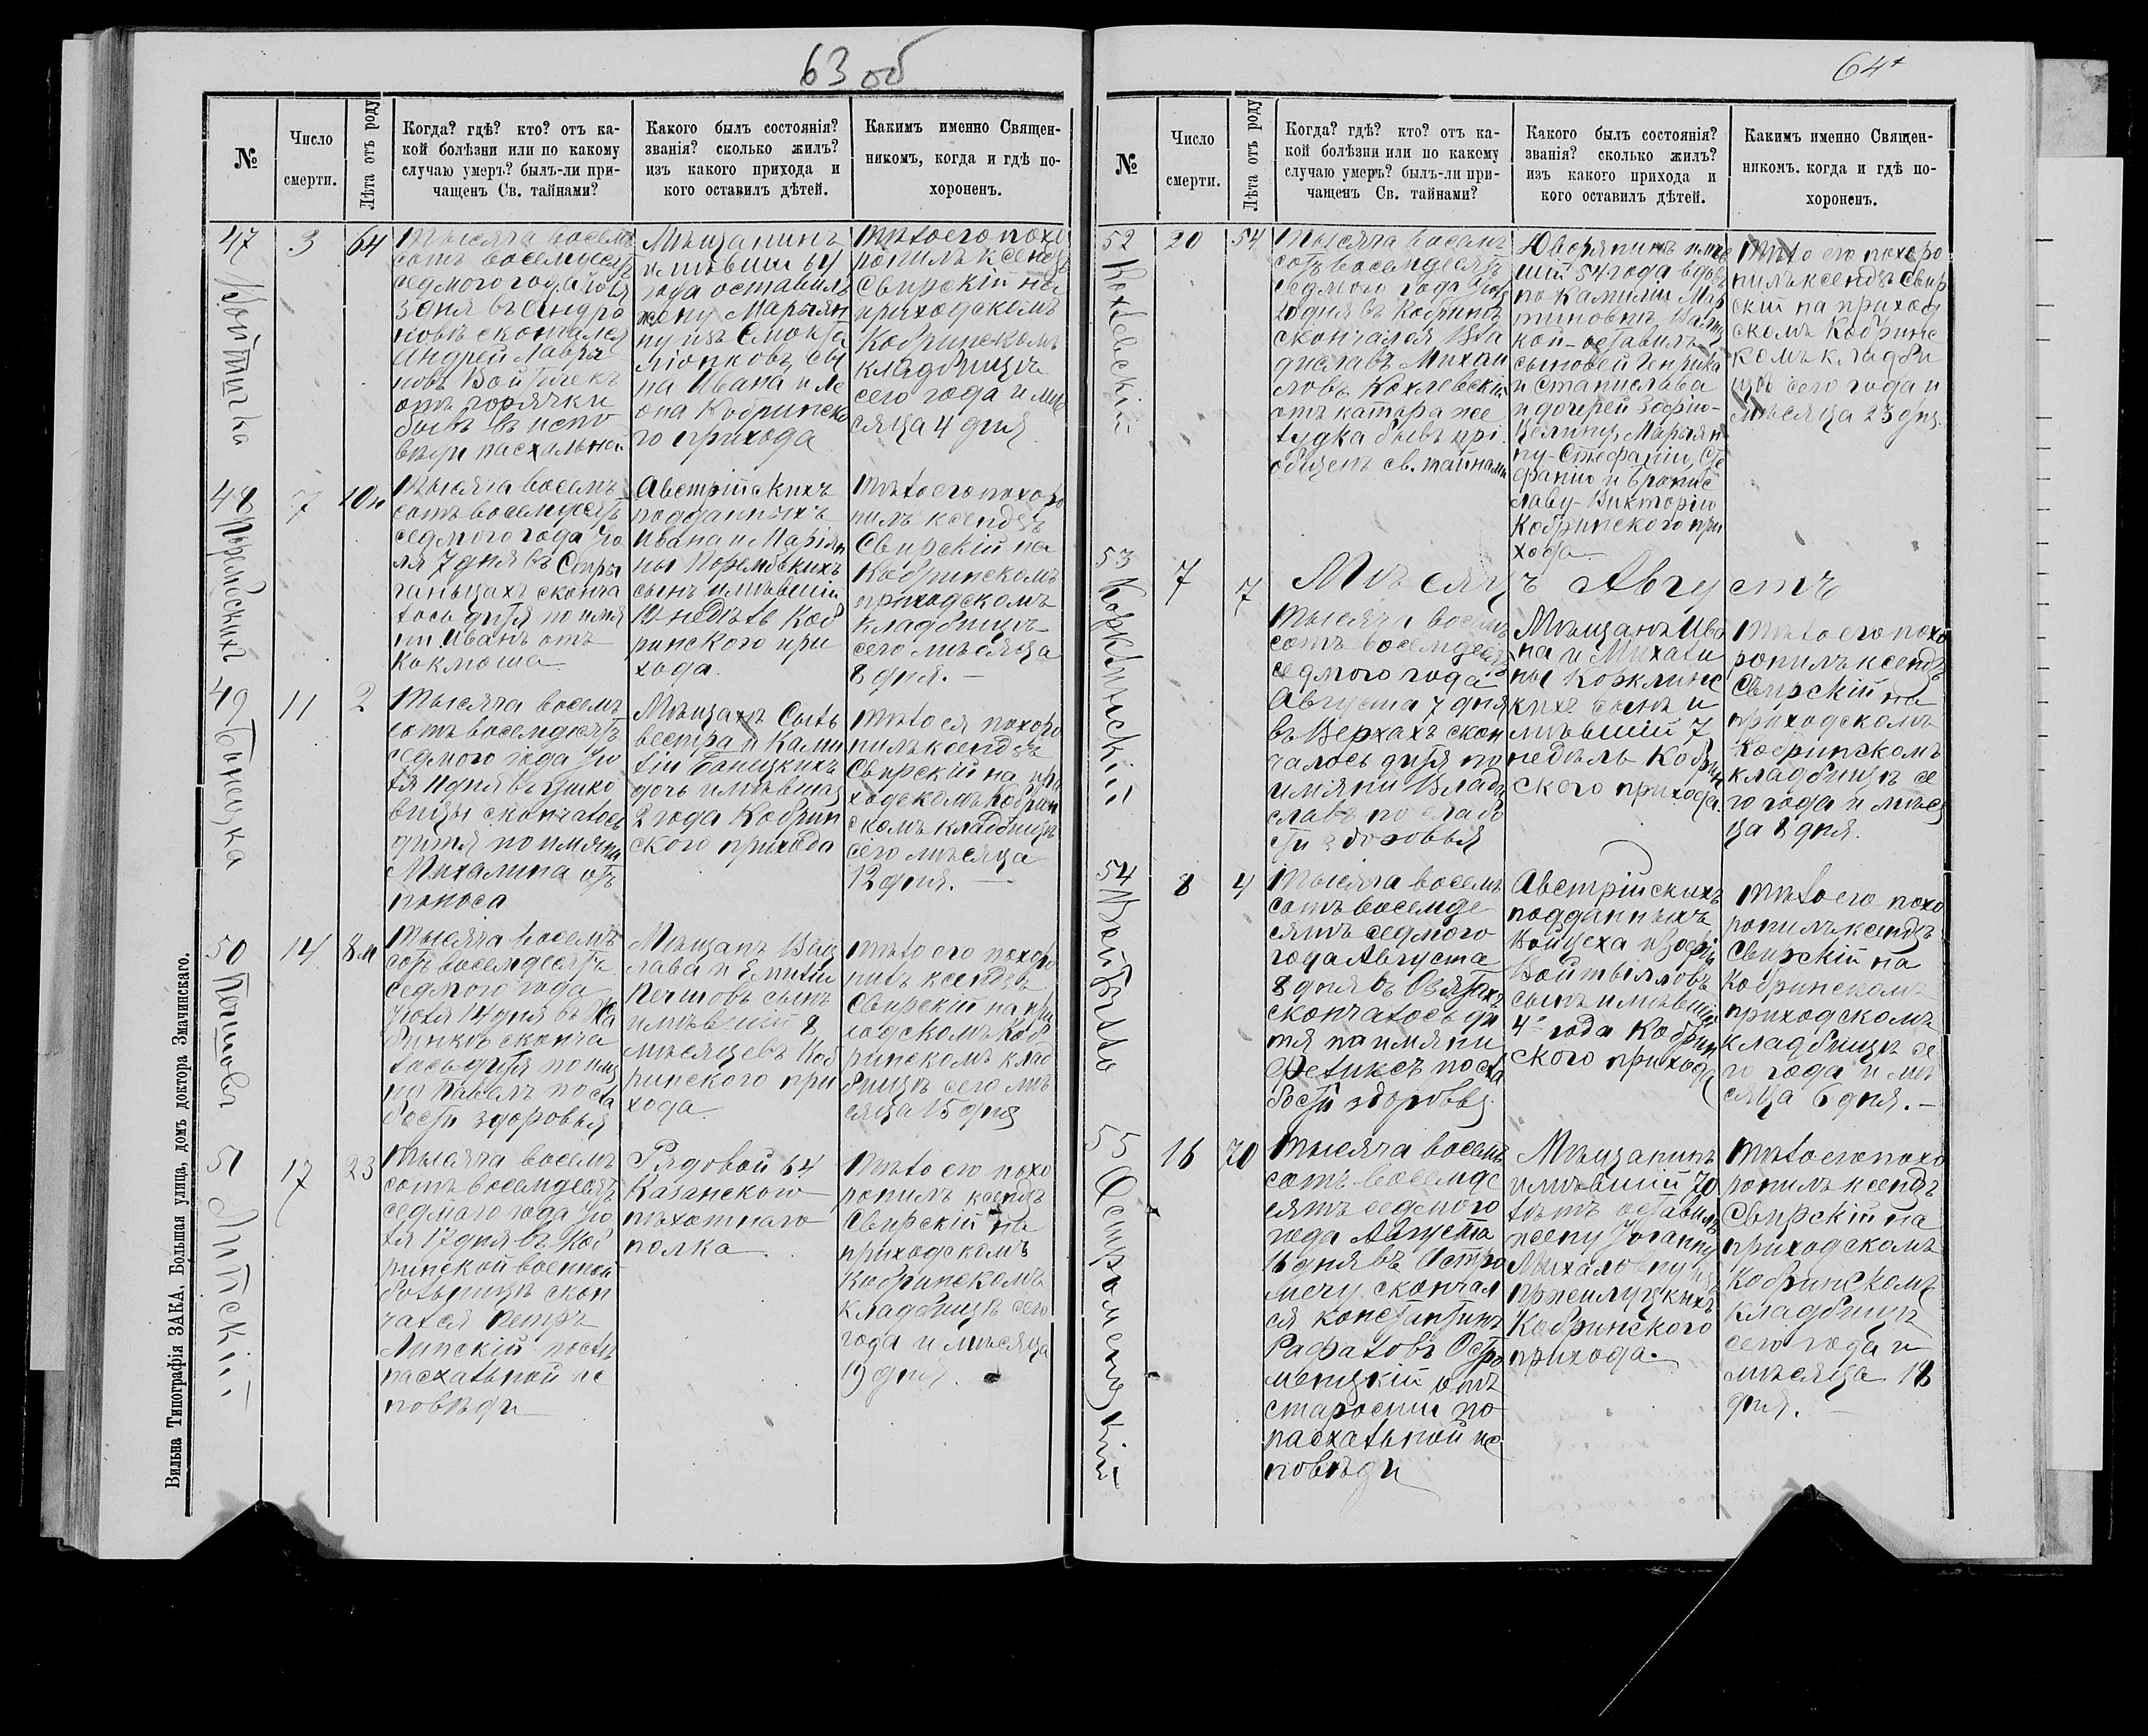 63 об
№
Число
смерти.
Лѣта отъ роду
Когда? гдѣ? кто? отъ ка-
кой болѣзни или по какому
случаю умеръ? былъ-ли при-
чащенъ Св. тайнами?
Какого былъ состоянія?
званія? сколько жилъ?
изъ какого прихода и
кого оставилъ дѣтей.
Какимъ именно Священ-
никомъ, когда и гдѣ по-
хороненъ.
47
3
64
Тысяча восемь
сотъ восемдесятъ
седмого года Іюля
3 дня въ Андро
новѣ скончался
Андрей
Войтичекъ
отъ горячки
бывъ въ испо
вѣди пасхальной
Мѣщанинъ
имѣвшій 64
года оставилъ
жену Марьян
ну изъ
сы
на Ивана и Ле
она Кобринска
го прихода
Тѣло его похо
ронилъ ксендзъ
Свирскій на
приходскомъ
Кобринскомъ
кладбищѣ
сего года и мѣ
сяца 4 дня
48
7
10н
Тысяча восемь
сотъ восемдесятъ
седмого года Ію
ля 7 дня въ Стры
ганьцахъ сконча
лось дитя по имя
ни Иванъ отъ
коклюша
Австрійскихъ
подданныхъ
Ивана и Маріян
ны Порембскихъ
сынъ имѣвшій
10 недѣль Коб
ринского при
хода.
Тѣло его похоро
нилъ ксендзъ
Свирскій на
Кобринскомъ
приходскомъ
кладбищѣ
сего мѣсяца
8 дня. —
49 Банецка
11
2
Тысяча восемь
сотъ восемдесятъ
седмого года Ію
ля 11 дня въ
скончалось
дитя по имяни
Михалина отъ
поноса
Мѣщанъ Силь
вестра и Ками
ліи Банецкихъ
дочь имѣвшая
2 года Кобрин
ского прихода
Тѣло ея похоро
нилъ ксендзъ
Свирскій на при
ходскомъ Кобрин
скомъ кладбищѣ
сего мѣсяца
12 дня. —
50 Печшовъ
14
8м
Тысяча восемь
сотъ восемдесятъ
седмого года
Іюля 14 дня въ
сконча
лось дитя по имя
ни Павелъ по сла
бости здоровья
Мѣщанъ Вац
лава и Емиліи
Печшовъ сынъ
имѣвшій 8
мѣсяцевъ Коб
ринского при
хода
Тѣло его похоро
нилъ ксендзъ
Свирскій на при
ходскомъ Коб
ринскомъ клад
бищѣ сего мѣ
сяца 15 дня
51 Липскій
17
23
Тысяча восемь
сотъ восемдесятъ
седмого года Ію
ля 17 дня въ Коб
ринской военной
больницѣ скон
чался Петръ
Липскій послѣ
пасхальной ис
повѣди
Рядовой 64
Казанского
пѣхотнаго
полка
Тѣло его похо
ронилъ ксендзъ
Свирскій на
приходскомъ
Кобринскомъ
кладбищѣ сего
года и мѣсяца
19 дня.
Вильна Типографія ЗАКА, Большая улица, домъ доктора Змачинскаго.
64
№
Число
смерти.
Лѣта отъ роду
Когда? гдѣ? кто? отъ ка-
кой болѣзни или по какому
случаю умеръ? былъ-ли при-
чащенъ Св. тайнами?
Какого былъ состоянія?
званія? сколько жилъ?
изъ какого прихода и
кого оставилъ дѣтей.
Какимъ именно Священ-
никомъ. когда и гдѣ по-
хороненъ.
52 Кохлевскій
20
54
Тысяча восемь
сотъ восемдесятъ
седмого года Іюля
20 дня въ Кобринѣ
скончался Вла
диславъ Михаи
ловъ Кохлевскій
отъ катара же
лудка бывъ прі
общенъ св. тайнами
Дворянинъ имѣв
шій 54 года вдовъ
по Камиліи Мар
тиновнѣ
оставилъ
сыновей Генрика
и Станислава
и дочерей Зофію-
Целину, Марьян
ну-Стефанію, Сте
фанію и Бронис
лаву-Викторію
Кобринского при
хода
Тѣло его похоро
нилъ ксендзъ Свир
скій на приход
скомъ Кобринс
комъ кладби
щѣ сего года и
мѣсяца 23 дня.
Мѣсяцъ Августъ
53 Корклинскій
7
7
Тысяча восемь
сотъ восемдесятъ
седмого года
Августа 7 дня
въ Верхахъ скон
чалось дитя по
имяни Влади
славъ по слабо
сти здоровья
Мѣщанъ Ива
на и Михали
ны Корклинс
кихъ сынъ и
мѣвшій 7
недѣль Кобрин
ского прихода.
Тѣло его похо
ронилъ ксендзъ
Свирскій на
приходскомъ
Кобринскомъ
кладбищѣ се
го года и мѣся
ца 8 дня.
54
8
4
Тысяча восемь
сотъ восемде
сятъ седмого
года Августа
8 дня въ Озятахъ
скончалось ди
тя по имяни
Феликсъ по сла
бости здоровья
Австрійскихъ
подданныхъ
Войцеха и Зофіи
сынъ имѣвшій
4 года Кобрин
ского прихода
Тѣло его похо
ронилъ ксендзъ
Свирскій на
Кобринскомъ
приходскомъ
кладбищѣ се
го года и мѣ
сяца 6 дня. —
55 Остромецкій
16
70
Тысяча восемь
сотъ восемде
сятъ седмого
года Августа
16 дня въ Остро
мечу скончал
ся Константинъ
Рафаловъ Остро
мецкій отъ
старости по
пасхальной ис
повѣди
Мѣщанинъ
имѣвшій 70
лѣтъ оставилъ
жену Іоганну
Михаловну изъ
Пржилуцкихъ
Кобринского
прихода.
Тѣло его похо
ронилъ ксендзъ
Свирскій на
приходскомъ
Кобринскомъ
кладбищѣ
сего года и
мѣсяца 18
дня. —